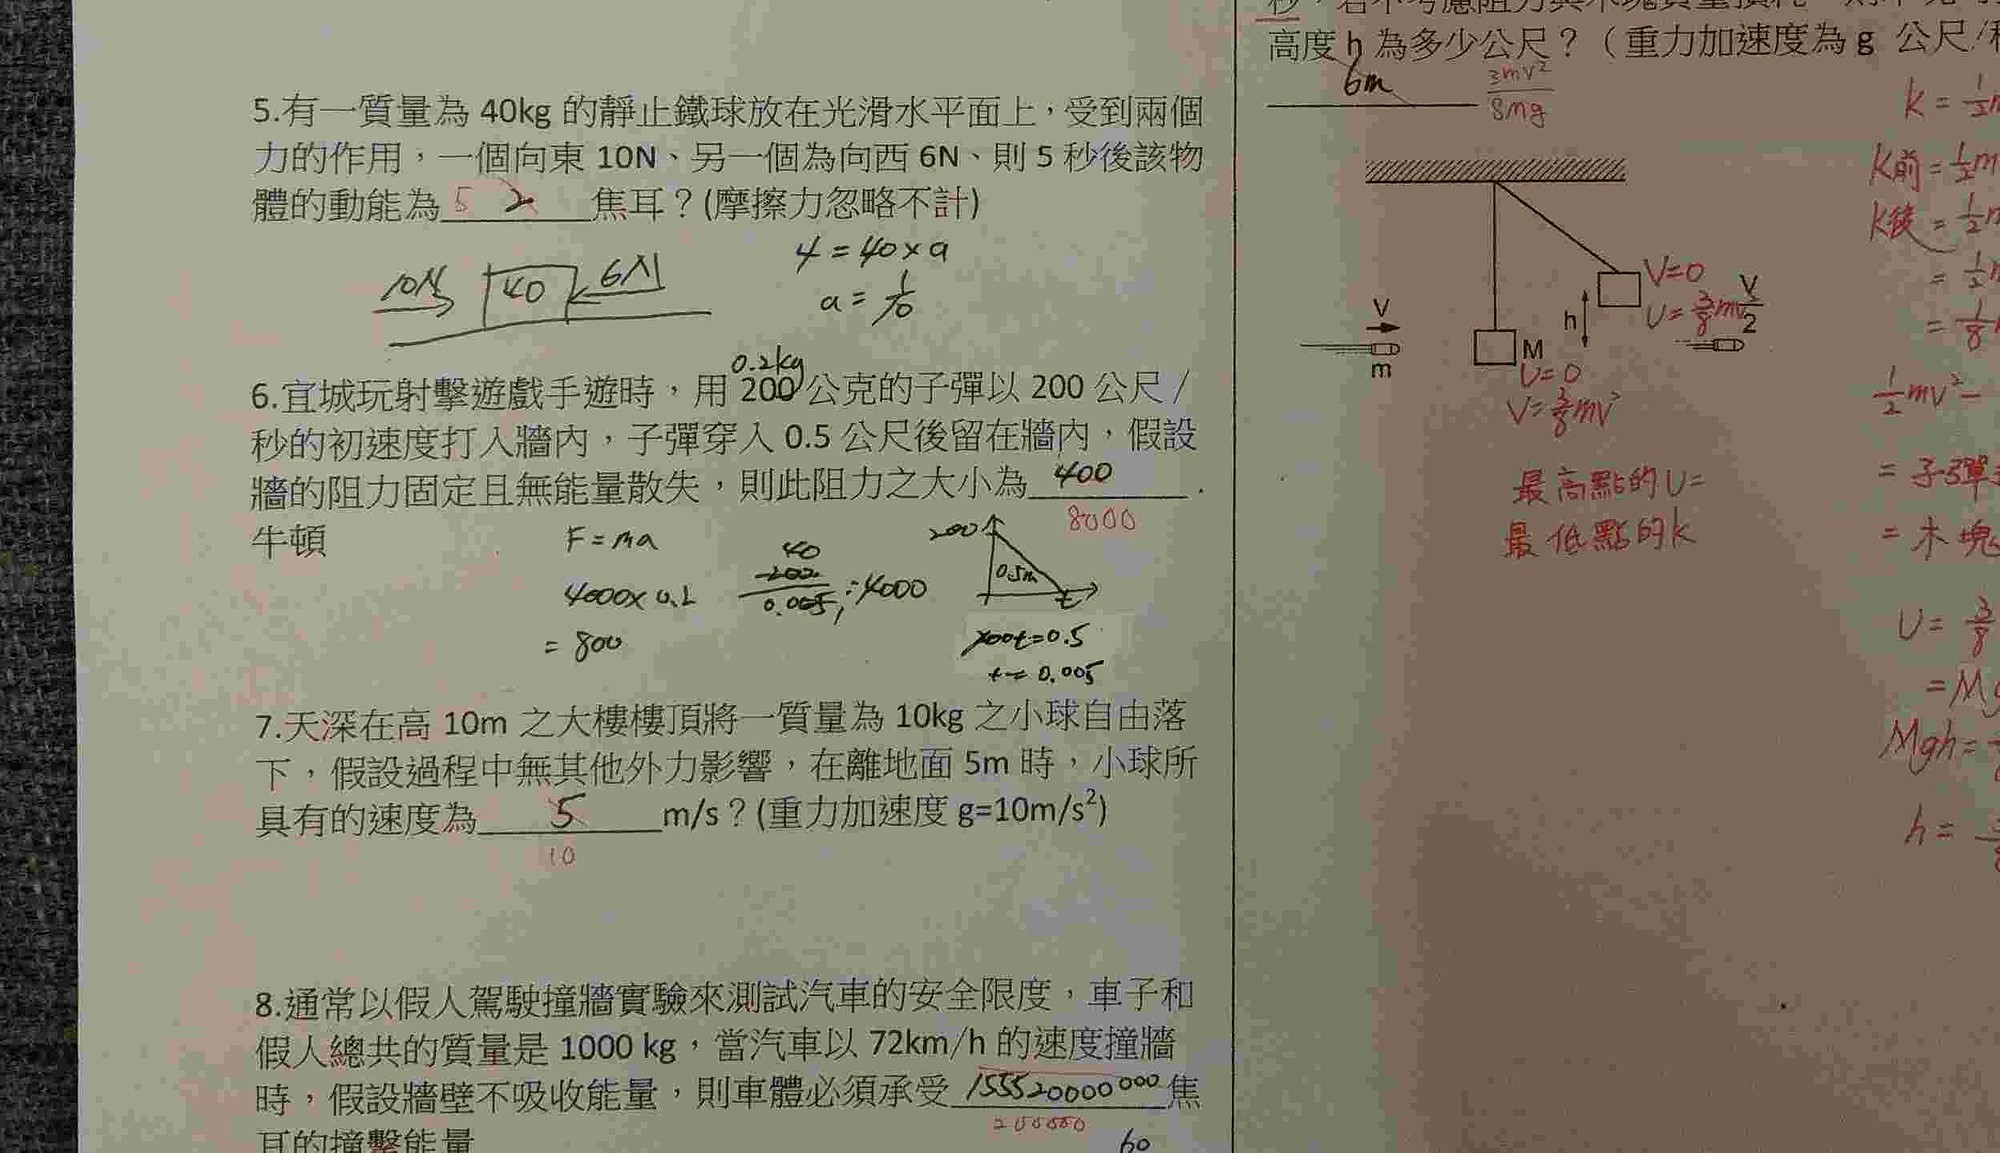 5.有一質量為 40kg 的靜止鐵球放在光滑水平面上，受到兩個
力的作用，一個向東 10N、另一個為向西 6N、則 5 秒後該物
體的動能為 5 2 焦耳？(摩擦力忽略不計)
10N 40 6N
4=40×a
a=1/10
0.2kg
6.宜城玩射擊遊戲手遊時，用 200 公克的子彈以 200 公尺/
秒的初速度打入牆內，子彈穿入 0.5 公尺後留在牆內，假設
牆的阻力固定且無能量散失，則此阻力之大小為 400 .
8000
牛頓
F=ma
4000×0.2
=800
40
200
0.005
=4000
200
0.5m
t
200t=0.5
t=0.005
7.天深在高 10m 之大樓樓頂將一質量為 10kg 之小球自由落
下，假設過程中無其他外力影響，在離地面 5m 時，小球所
具有的速度為 5 m/s？(重力加速度 g=10m/s²)
10
8.通常以假人駕駛撞牆實驗來測試汽車的安全限度，車子和
假人總共的質量是 1000 kg，當汽車以 72km/h 的速度撞牆
時，假設牆壁不吸收能量，則車體必須承受 155520000000 焦
200000
耳的撞擊能量
60
高度 h 為多少公尺？（重力加速度為 g 公尺/
6m
3mv²
8mg
V
m
M
h
V
2
V=0
U=3/8mv²
U=0
V=3/8mv²
最高點的U=
最低點的k
k=
k前=
k後=
=
=
1/2mv²-
=子彈
=木塊
U=3/8
=Mg
Mgh=
h=